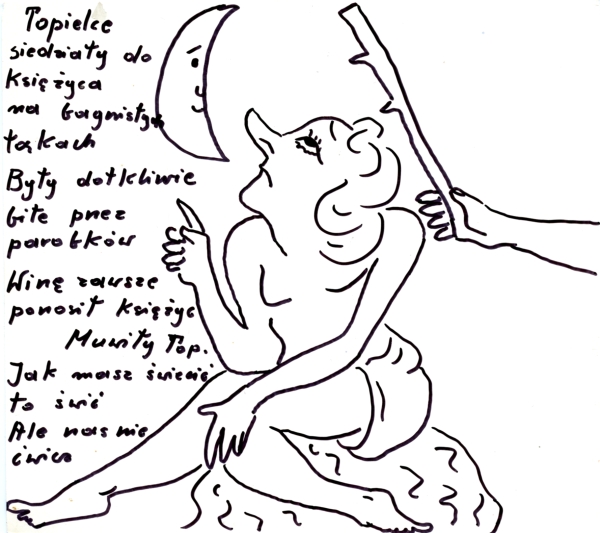 Topielce
siedziały do
Księżyca
na bagnistych
łąkach
Były dotkliwie
bite przez
parobków
Winę zawsze
ponosił księżyc
Mówiły Top.
Jak masz świecić
to świć
Ale nas nie
ćwicz